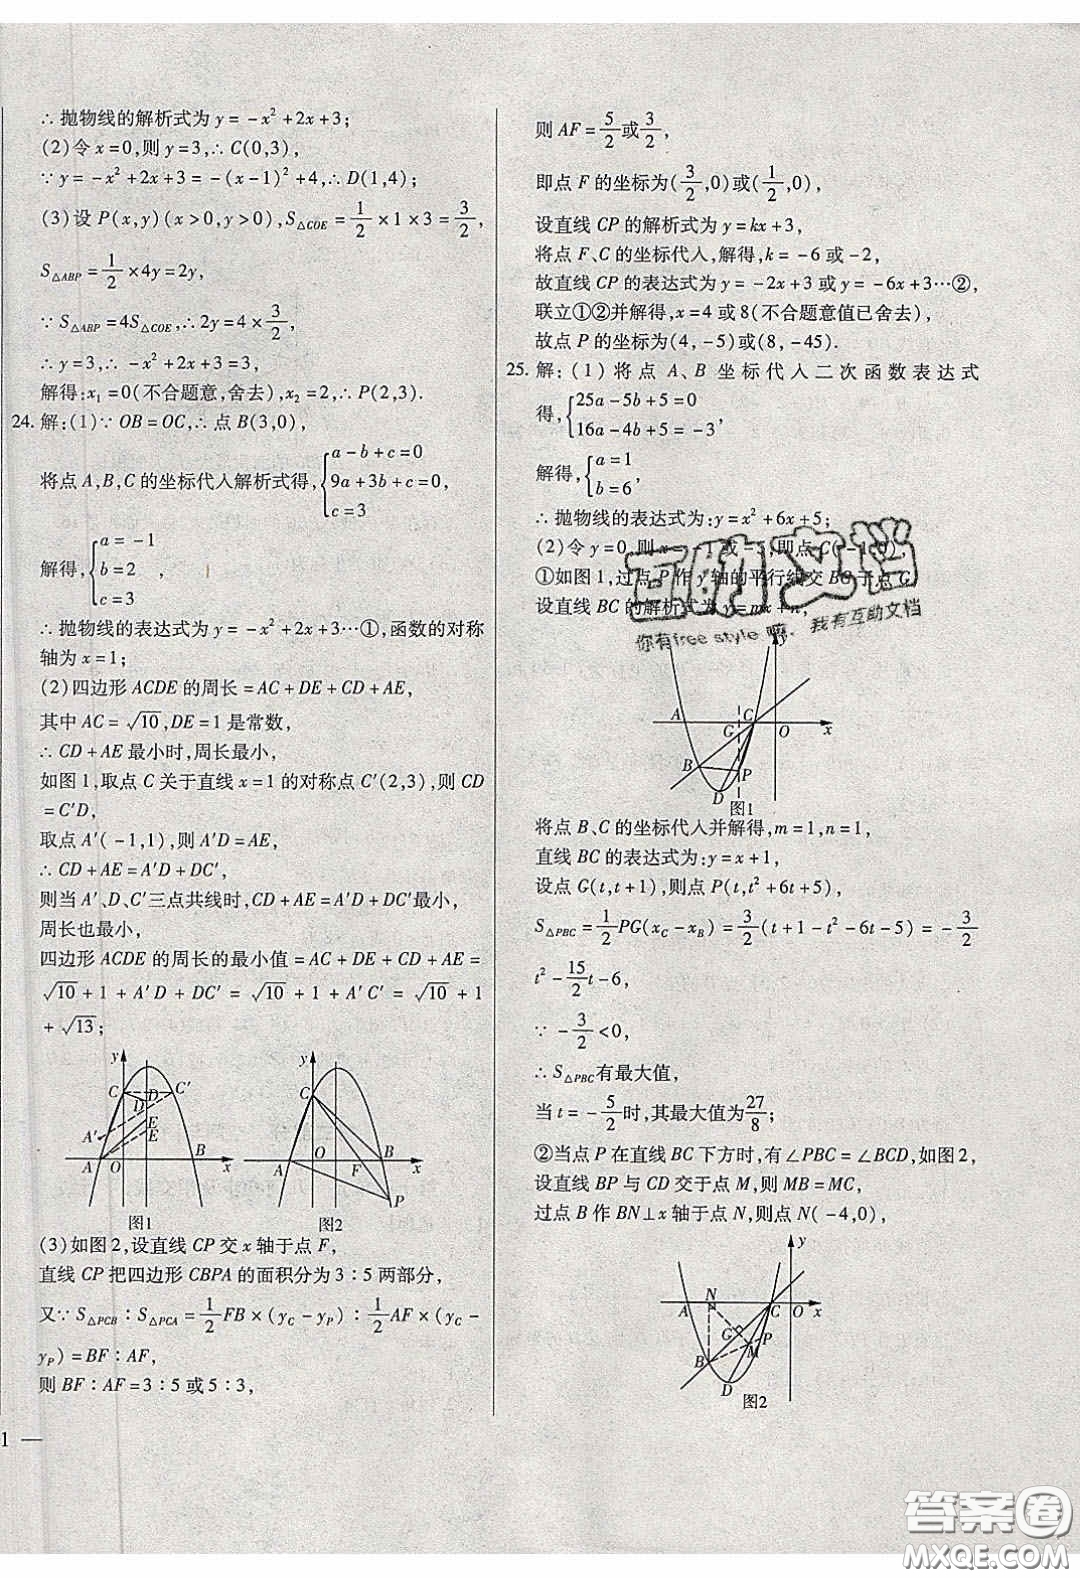 ∴抛物线的解析式为y=-x²+2x+3;
(2)令x=0,则y=3,∴C(0,3),
∵y=-x²+2x+3=-(x-1)²+4,∴D(1,4);
(3)设P(x,y)(x>0,y>0),S△COE=1/2×1×3=3/2,
S△ABP=1/2×4y=2y,
∵S△ABP=4S△COE,∴2y=4×3/2,
∴y=3,∴-x²+2x+3=3,
解得:x₁=0(不合题意,舍去),x₂=2,∴P(2,3).
24.解:(1)∵OB=OC,∴点B(3,0),
将点A,B,C的坐标代入解析式得,{a-b+c=0
9a+3b+c=0,
c=3
解得,{a=-1
b=2,
c=3
∴抛物线的表达式为y=-x²+2x+3…①,函数的对称
轴为x=1;
(2)四边形ACDE的周长=AC+DE+CD+AE,
其中AC=√10,DE=1是常数,
∴CD+AE最小时,周长最小,
如图1,取点C关于直线x=1的对称点C′(2,3),则CD
=C′D,
取点A′(-1,1),则A′D=AE,
∴CD+AE=A′D+DC′,
则当A′、D、C′三点共线时,CD+AE=A′D+DC′最小,
周长也最小,
四边形ACDE的周长的最小值=AC+DE+CD+AE=
√10+1+A′D+DC′=√10+1+A′C′=√10+1
+√13;
y
C
C′
D
D
A′
E
E
A
O
B
x
图1
y
C
A
O
F
B
x
P
图2
(3)如图2,设直线CP交x轴于点F,
直线CP把四边形CBPA的面积分为3:5两部分,
又∵S△PCB:S△PCA=1/2FB×(yC-yP):1/2AF×(yC-
yP)=BF:AF,
则BF:AF=3:5或5:3,
1 —
则AF=5/2或3/2,
即点F的坐标为(3/2,0)或(1/2,0),
设直线CP的解析式为y=kx+3,
将点F、C的坐标代入,解得,k=-6或-2,
故直线CP的表达式为y=-2x+3或y=-6x+3…②,
联立①②并解得,x=4或8(不合题意值已舍去),
故点P的坐标为(4,-5)或(8,-45).
25.解:(1)将点A、B坐标代入二次函数表达式
得,{25a-5b+5=0
16a-4b+5=-3,
解得,{a=1
b=6,
∴抛物线的表达式为:y=x²+6x+5;
(2)令y=0,则x=-1或-5,即点C(-1,0),
①如图1,过点P作y轴的平行线交BC于点G
设直线BC的解析式为y=mx+n,
互助文档
你有free style嘛,我有互助文档
A
G
C
O
x
B
D
P
图1
将点B、C的坐标代入并解得,m=1,n=1,
直线BC的表达式为:y=x+1,
设点G(t,t+1),则点P(t,t²+6t+5),
S△PBC=1/2PG(xC-xB)=3/2(t+1-t²-6t-5)=-3/2
t²-15/2t-6,
∵-3/2<0,
∴S△PBC有最大值,
当t=-5/2时,其最大值为27/8;
②当点P在直线BC下方时,有∠PBC=∠BCD,如图2,
设直线BP与CD交于点M,则MB=MC,
过点B作BN⊥x轴于点N,则点N(-4,0),
y
A
N
C
O
x
G
P
M
B
D
图2
答案圈
MXQE.COM